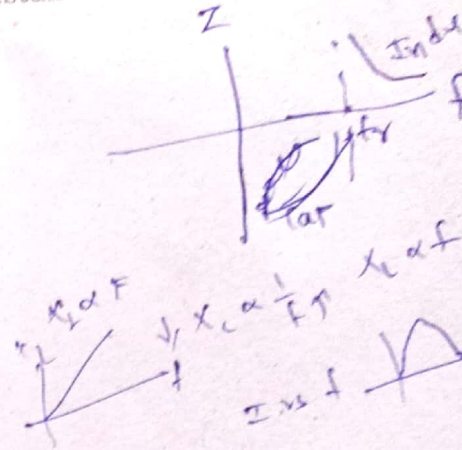 Z
Indu
f
fr
Cap
X_L α F
↓ X_c α 1/f ↑ X_L α f
f
I vs f